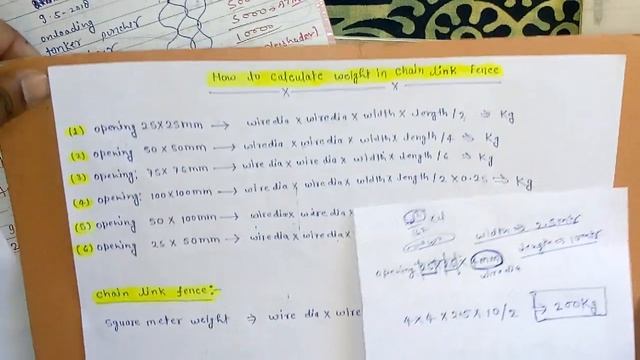 9-5-2018
onloading
tanker puncher
5000
10000
How to calculate weight in chain link fence
(1) opening 25X25mm → wire dia x wire dia x width x length /2 ⇒ Kg
(2) opening 50 x 50mm → wire dia x wire dia x width x length /4 ⇒ Kg
(3) opening: 75 x 75mm → wire dia x wire dia x width x length /6 ⇒ Kg
(4) opening: 100x100mm → wire dia x wire dia x width x length /2 x 0.25 → Kg
(5) opening 50 x 100mm → wire dia x wire dia x
(6) opening 25 x 50mm → wire dia x wire dia x
chain link fence:-
square meter weight ⇒ wire dia x wire
width ⇒ 2.5
length ⇒
opening 4mm
wire dia
4 x 4 x 2.5 x 10/2 → 200Kg